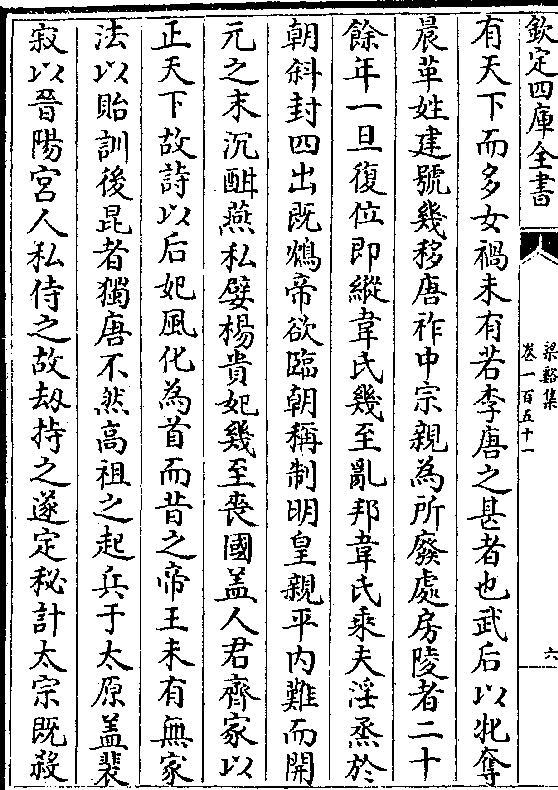 欽定四庫全書
梁谿集
卷一百五十一
六
有天下而多女禍未有若李唐之甚者也武后以牝奪
晨革姓建號幾移唐祚中宗親為所廢處房陵者二十
餘年一旦復位即縱韋氏幾至亂邦韋氏乘夫淫烝於
朝斜封四出既鴆帝欲臨朝稱制明皇親平内難而開
元之末沉酣燕私嬖楊貴妃幾至喪國盖人君齊家以
正天下故詩以后妃風化為首而昔之帝王未有無家
法以貽訓後昆者獨唐不然高祖之起兵于太原盖裴
寂以晉陽宮人私侍之故劫持之遂定秘計太宗既殺